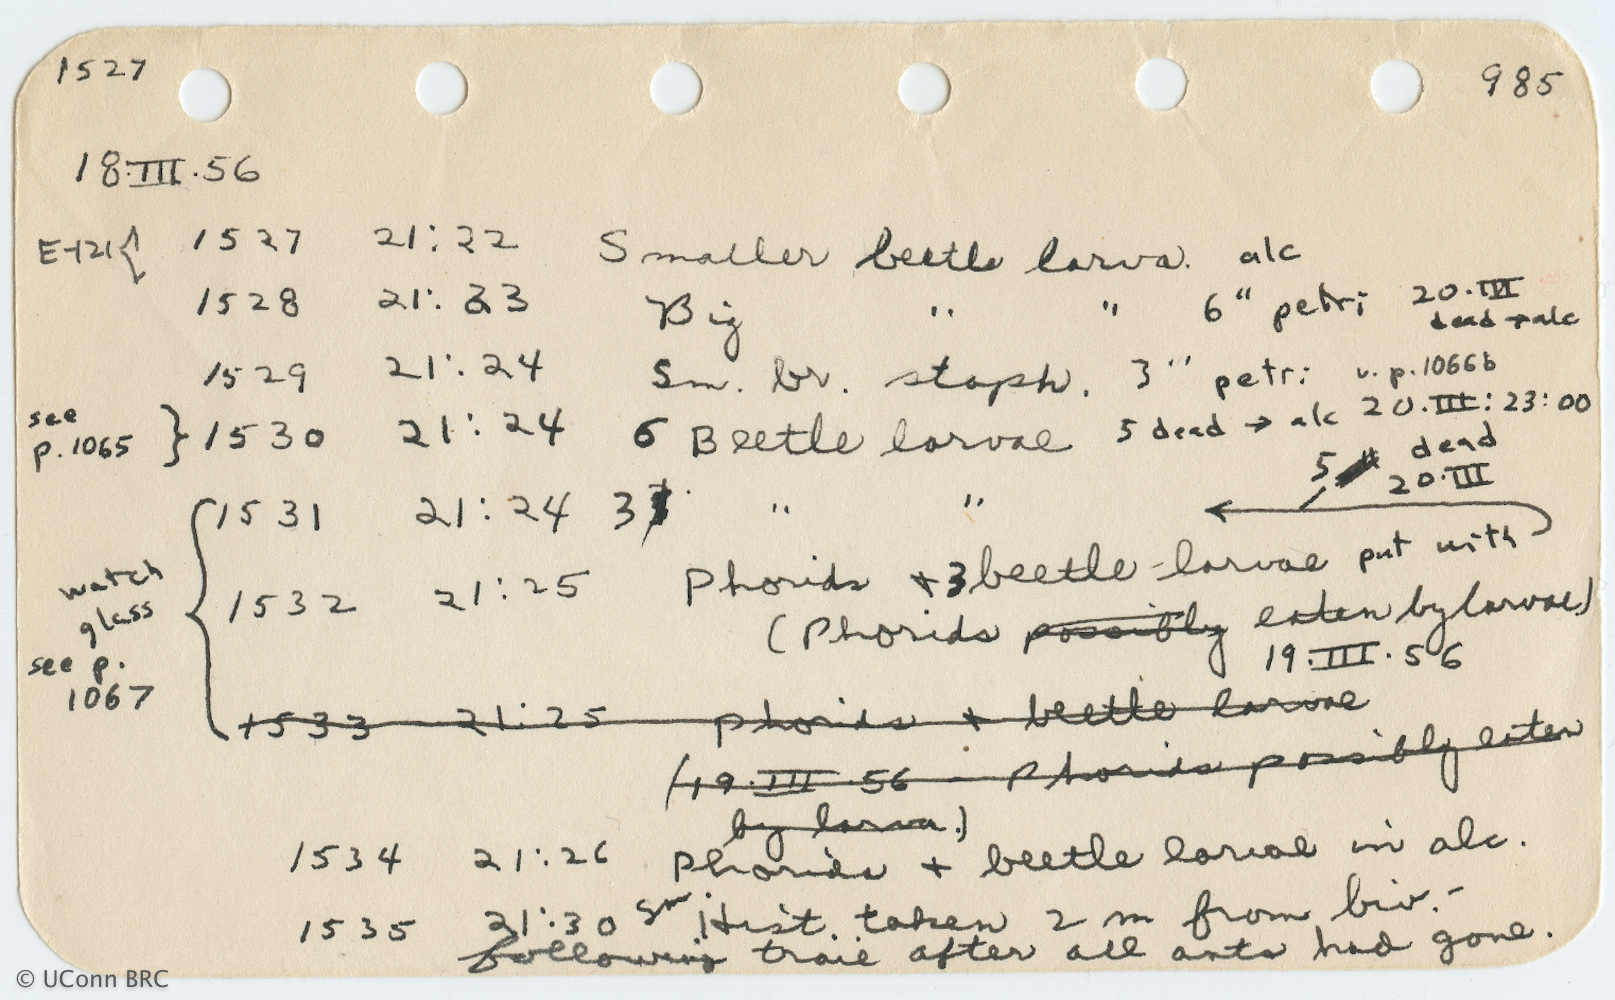 1527 985
18.III.56
E-121{ 1527 21:22 Smaller beetle larva. alc
1528 21:23 Big " " 6" petri 20.III dead → alc
1529 21:24 Sm. br. staph. 3" petri v. p. 1066b
see p. 1065 } 1530 21:24 6 Beetle larvae 5 dead → alc 20.III: 23:00
5 dead 20.III
1531 21:24 3 " "
watch glass see p. 1067 { 1532 21:25 Phorids + 3 beetle-larvae put with
(Phorids possibly eaten by larvae)
19.III.56
1533 21:25 phorids + beetle larvae
(19.III.56 - Phorids possibly eaten
by larva.)
1534 21:26 phorids + beetle larvae in alc.
1535 21:30 Sm Hist. taken 2 m from biv.-
following trail after all ants had gone.
© UConn BRC